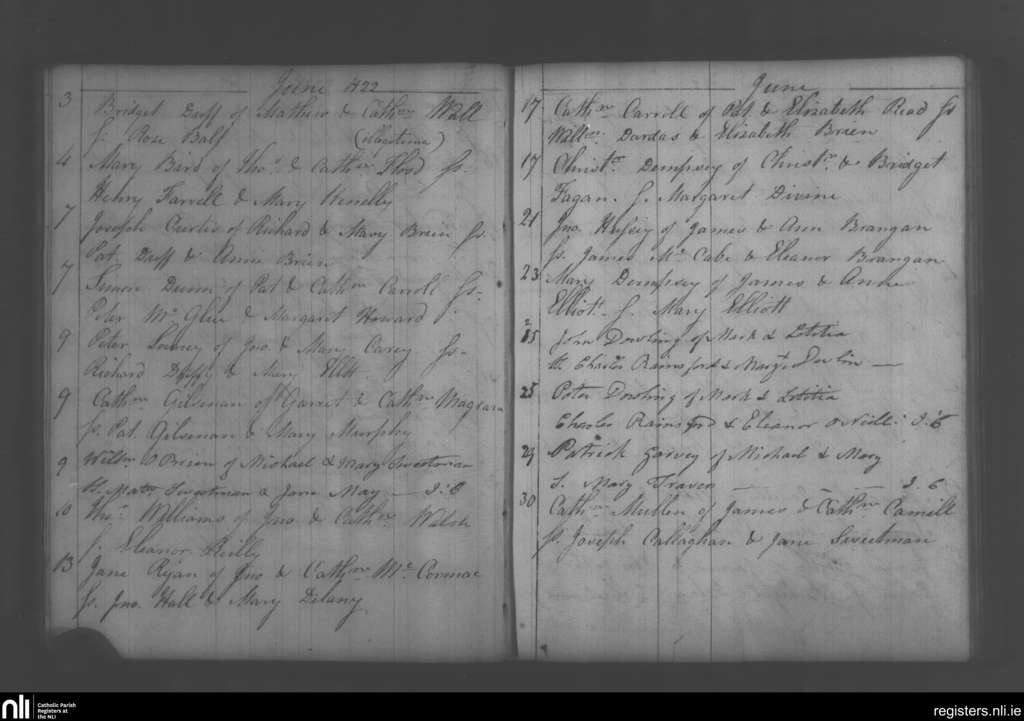 June 1822
3 Bridget Duff of Mathew & Cathne Wall
s: Rose Balf (illegitima)
4 Mary Bard of Thos & Cathne Flood ss.
Henry Farrell & Mary Henelly
7 Joseph Curtis of Richard & Mary Brien ss.
Pat Duff & Anne Brien
7 Simon Dunn of Pat & Cathne Carroll Ss-
Peter Mc Glue & Margaret Howard
9 Peter of Jno. & Mary Carey Ss-
Richard Duffy & Mary Elliott
9 Cathne Gilsenan of Garret & Cathne Magrane
ss. Pat. Gilsenan & Mary Murphy
9 Willm O Brien of Michael & Mary Sweetman
ss. Sweetman & Jane May — 2:6
10 Thos Williams of Jno & Cathne Walsh
s. Eleanor Reilly
13 Jane Ryan of Jno & Cathne Mc Cormac
Ss. Jno. Hall & Mary Delany
June
17 Cathne Carroll of Pat. & Elizabeth Read ss
Willm Dardas & Elizabeth Brien
17 Christr Dempsey of Christr & Bridget
Fagan. S. Margaret Divine
21 Jno. of James & Ann Brangan
Ss. James Mc Cabe & Eleanor Brangan
23 Mary Dempsey of James & Anne
Elliott. S. Mary Elliott
John Dowling of Mark & Letitia
ss. Charles Rainsford & Mary Dowlin —
25 Peter Dowling of Mark & Letitia
Charles Rainsford & Eleanor O Neill: 2:6
29 Patrick Garvey of Michael & Mary
S. Mary Traven — — — 2. 6
30 Cathne Mullen of James & Cathne Camill
ss. Joseph Callaghan & Jane Sweetman
nli
Catholic Parish
Registers at
the NLI
registers.nli.ie